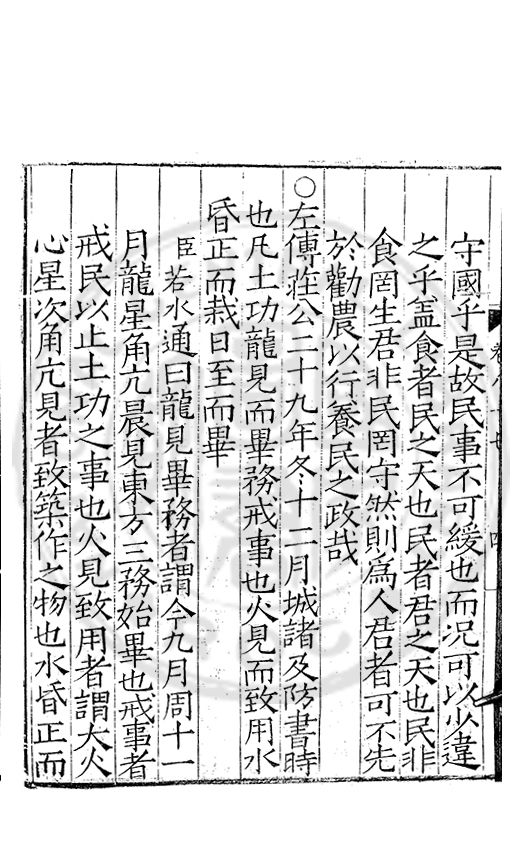 守國乎是故民事不可緩也而况可以少違
之乎盖食者民之天也民者君之天也民非
食罔生君非民罔守然則爲人君者可不先
於勸農以行養民之政哉
○左傳莊公二十九年冬十二月城諸及防書時
也凡土功龍見而畢務戒事也火見而致用水
昏正而栽日至而畢
臣若水通曰龍見畢務者謂今九月周十一
月龍星角亢晨見東方三務始畢也戒事者
戒民以止土功之事也火見致用者謂大火
心星次角亢見者致築作之物也水昏正而